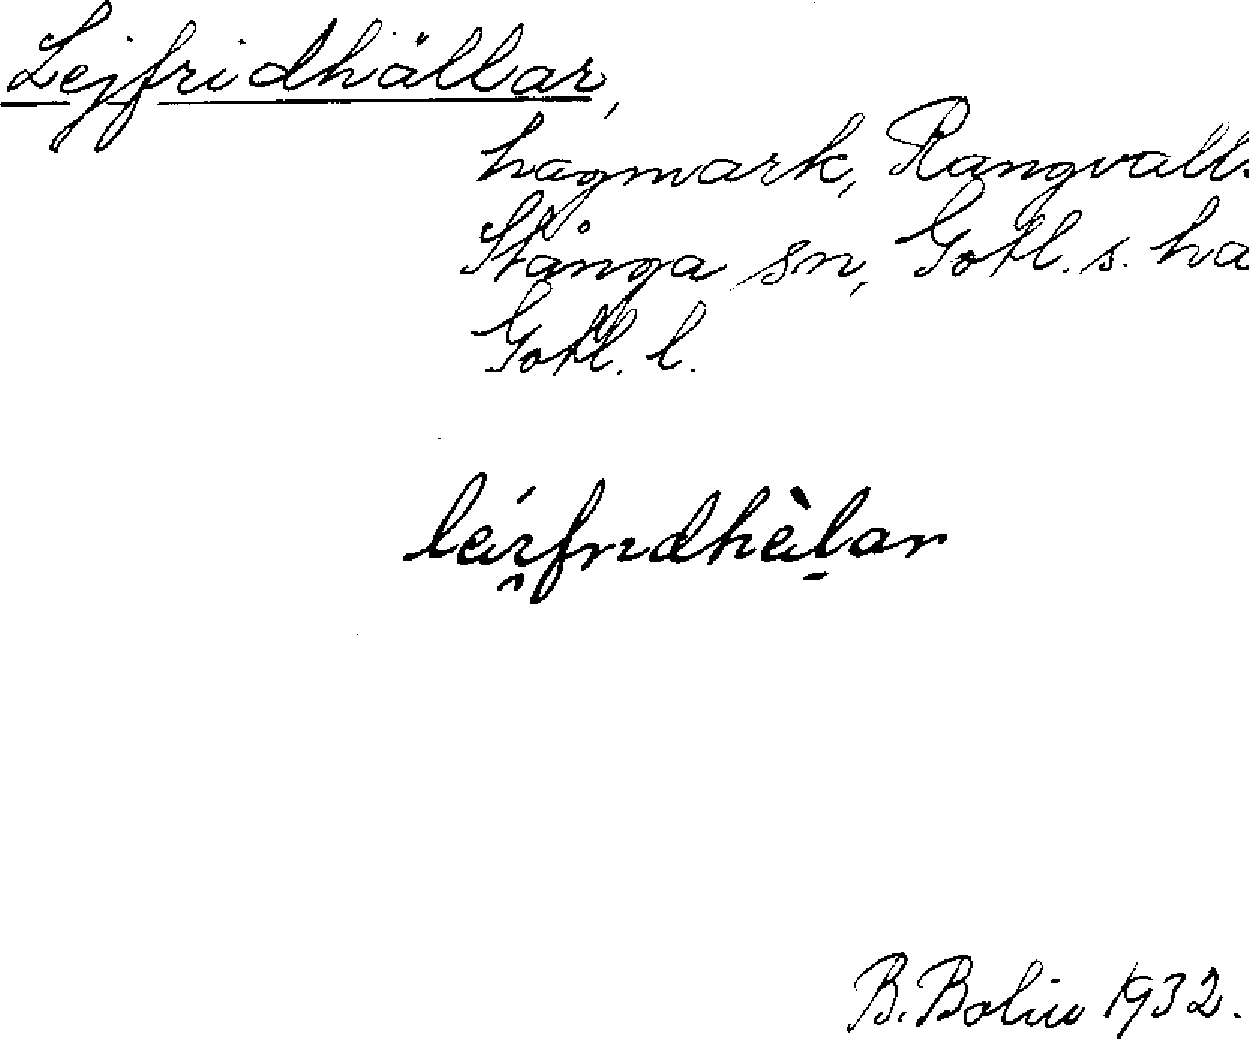 Lejfridhällar,
hagmark, Rangvalls
Stånga sn, Gotl. s. hä
Gotl. l.
B. Bolin 1932.